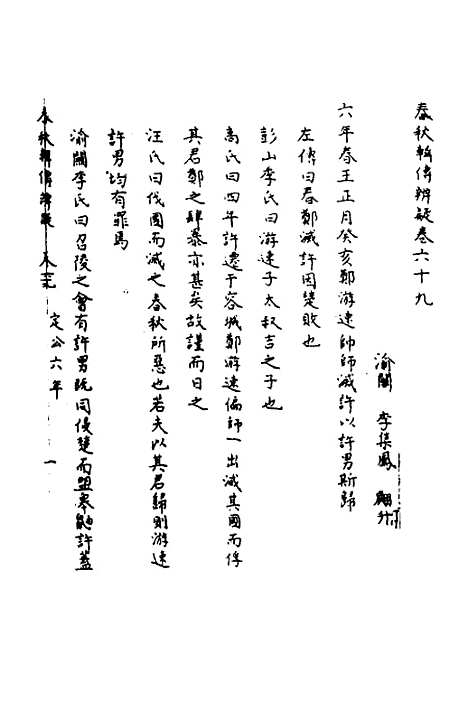 春秋輯傳辨疑卷六十九
渝關 李集鳳 翽升
六年春王正月癸亥鄭游速帥師滅許以許男斯歸
左傳曰春鄭滅許因楚敗也
彭山李氏曰游速子太叔吉之子也
高氏曰四年許遷于容城鄭游速偏師一出滅其國而俘
其君鄭之肆暴亦甚矣故謹而日之
汪氏曰伐國而滅之春秋所惡也若夫以其君歸則游速
許男均有罪焉
渝關李氏曰召陵之會有許男既同侵楚而盟皋鼬許蓋
春秋輯傳辨疑 定公六年 一